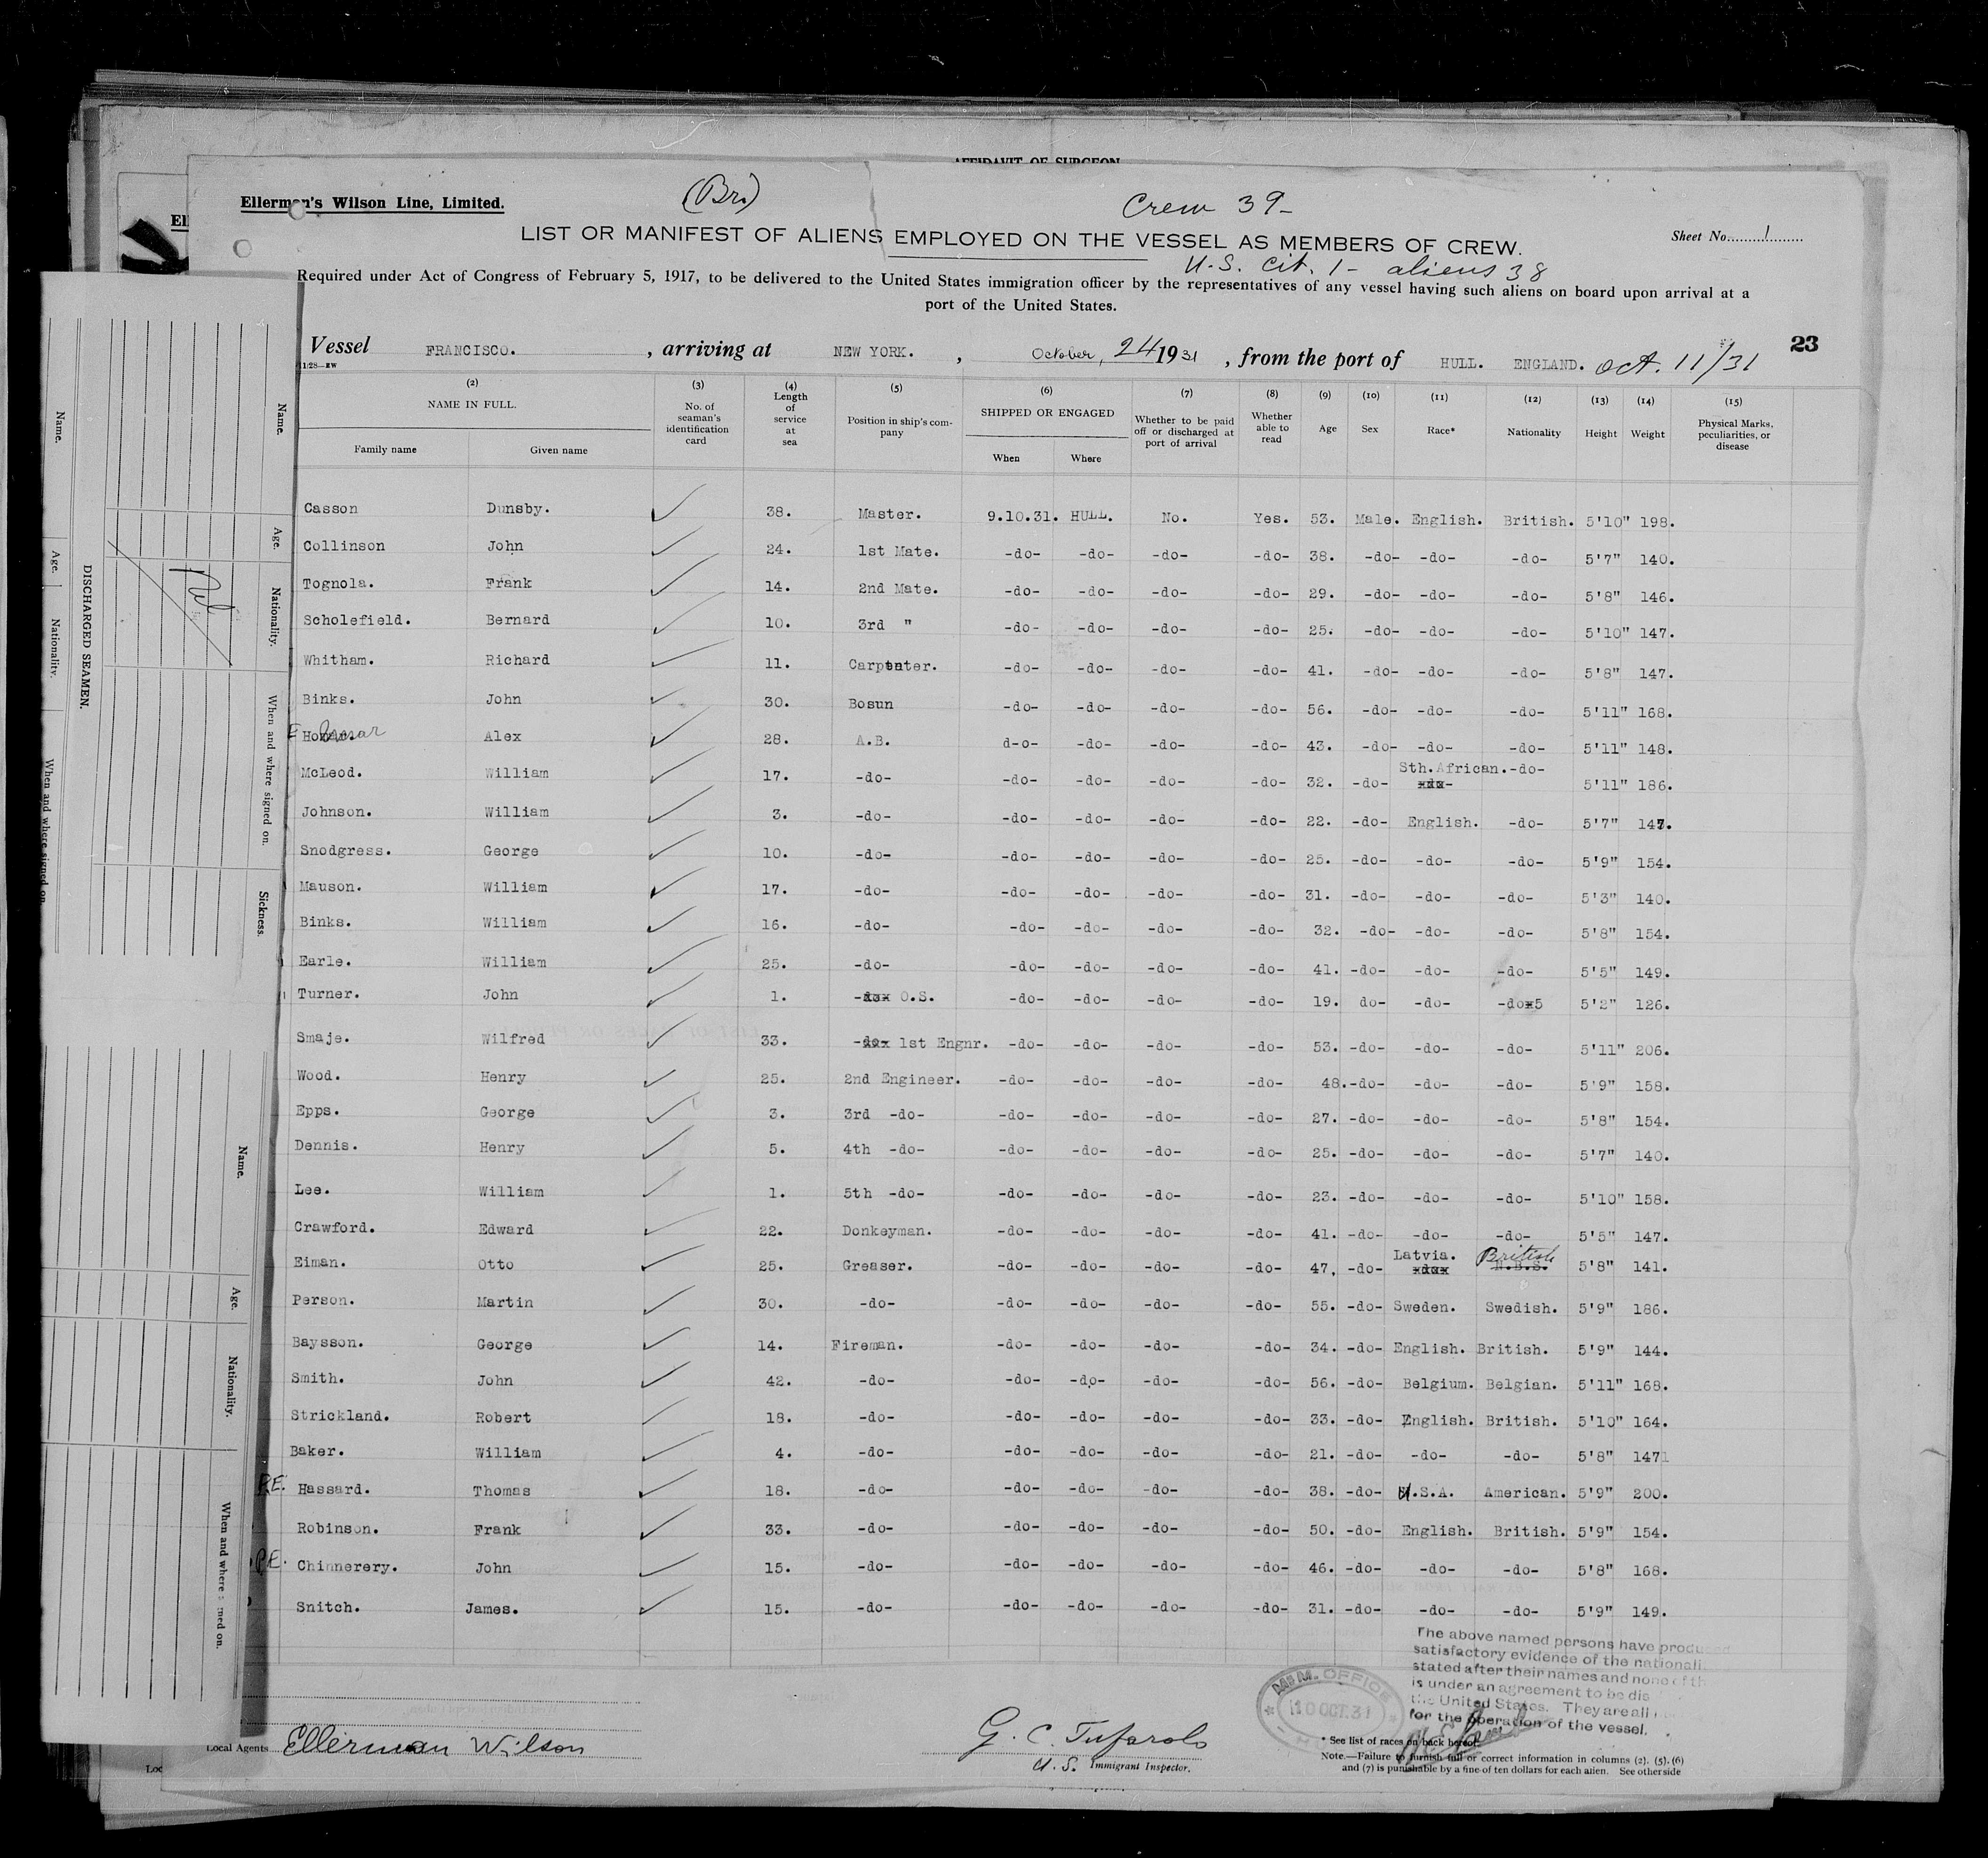 AFFIDAVIT OF SURGEON
Ellerman's Wilson Line, Limited.
(Br.)
Crew 39-
LIST OR MANIFEST OF ALIENS EMPLOYED ON THE VESSEL AS MEMBERS OF CREW.
Sheet No. 1
U.S. Cit. 1 - aliens 38
Required under Act of Congress of February 5, 1917, to be delivered to the United States immigration officer by the representatives of any vessel having such aliens on board upon arrival at a
port of the United States.
Vessel FRANCISCO. , arriving at NEW YORK. , October, 24 1931 , from the port of HULL. ENGLAND. Oct. 11/31
23
(2) (3) (4) (5) (6) (7) (8) (9) (10) (11) (12) (13) (14) (15)
NAME IN FULL. Family name Given name
No. of seaman's identification card
Length of service at sea
Position in ship's company
SHIPPED OR ENGAGED When Where
Whether to be paid off or discharged at port of arrival
Whether able to read
Age Sex Race* Nationality Height Weight
Physical Marks, peculiarities, or disease
Casson Dunsby. 38. Master. 9.10.31. HULL. No. Yes. 53. Male. English. British. 5'10" 198.
Collinson John 24. 1st Mate. -do- -do- -do- -do- 38. -do- -do- -do- 5'7" 140.
Tognola. Frank 14. 2nd Mate. -do- -do- -do- -do- 29. -do- -do- -do- 5'8" 146.
Scholefield. Bernard 10. 3rd " -do- -do- -do- -do- 25. -do- -do- -do- 5'10" 147.
Whitham. Richard 11. Carpenter. -do- -do- -do- -do- 41. -do- -do- -do- 5'8" 147.
Binks. John 30. Bosun -do- -do- -do- -do- 56. -do- -do- -do- 5'11" 168.
Alex 28. A.B. d-o- -do- -do- -do- 43. -do- -do- -do- 5'11" 148.
McLeod. William 17. -do- -do- -do- -do- -do- 32. -do- Sth.African. -do- 5'11" 186.
Johnson. William 3. -do- -do- -do- -do- -do- 22. -do- English. -do- 5'7" 147.
Snodgress. George 10. -do- -do- -do- -do- -do- 25. -do- -do- -do- 5'9" 154.
Mauson. William 17. -do- -do- -do- -do- -do- 31. -do- -do- -do- 5'3" 140.
Binks. William 16. -do- -do- -do- -do- -do- 32. -do- -do- -do- 5'8" 154.
Earle. William 25. -do- -do- -do- -do- -do- 41. -do- -do- -do- 5'5" 149.
Turner. John 1. O.S. -do- -do- -do- -do- 19. do- -do- -dox5 5'2" 126.
Smaje. Wilfred 33. 1st Engnr. -do- -do- -do- -do- 53. -do- -do- -do- 5'11" 206.
Wood. Henry 25. 2nd Engineer. -do- -do- -do- -do- 48. -do- -do- -do- 5'9" 158.
Epps. George 3. 3rd -do- -do- -do- -do- -do- 27. -do- -do- -do- 5'8" 154.
Dennis. Henry 5. 4th -do- -do- -do- -do- -do- 25. -do- -do- -do- 5'7" 140.
Lee. William 1. 5th -do- -do- -do- -do- -do- 23. -do- -do- -do- 5'10" 158.
Crawford. Edward 22. Donkeyman. -do- -do- -do- -do- 41. -do- -do- -do- 5'5" 147.
Eiman. Otto 25. Greaser. -do- -do- -do- -do- 47, -do- Latvia. British N.B.S. 5'8" 141.
Person. Martin 30. -do- -do- -do- -do- -do- 55. -do- Sweden. Swedish. 5'9" 186.
Baysson. George 14. Fireman. -do- -do- -do- -do- 34. -do- English. British. 5'9" 144.
Smith. John 42. -do- -do- -do- -do- -do- 56. -do- Belgium. Belgian. 5'11" 168.
Strickland. Robert 18. -do- -do- -do- -do- -do- 33. -do- English. British. 5'10" 164.
Baker. William 4. -do- -do- -do- -do- -do- 21. -do- -do- -do- 5'8" 147
P.E. Hassard. Thomas 18. -do- -do- -do- -do- -do- 38. -do- U.S.A. American. 5'9" 200.
Robinson. Frank 33. -do- -do- -do- -do- -do- 50. -do- English. British. 5'9" 154.
P.E. Chinnerery. John 15. -do- -do- -do- -do- -do- 46. -do- -do- -do- 5'8" 168.
Snitch. James. 15. -do- -do- -do- -do- -do- 31. -do- -do- -do- 5'9" 149.
The above named persons have
satisfactory evidence of the
stated after their names and none of
is under an agreement to be
the United States. They are all
for the operation of the vessel.
IMM. OFFICE
10 OCT. 31
Local Agents Ellerman Wilson
G. C. Tufarolo
U.S. Immigrant Inspector.
* See list of races on back hereof.
Note.—Failure to furnish full or correct information in columns (2), (5), (6)
and (7) is punishable by a fine of ten dollars for each alien. See other side
DISCHARGED SEAMEN.
Name. Age. Nationality. When and where signed on. Sickness.
Name. Age. Nationality. When and where signed on.
Name. Age. Nationality. When and where signed on.